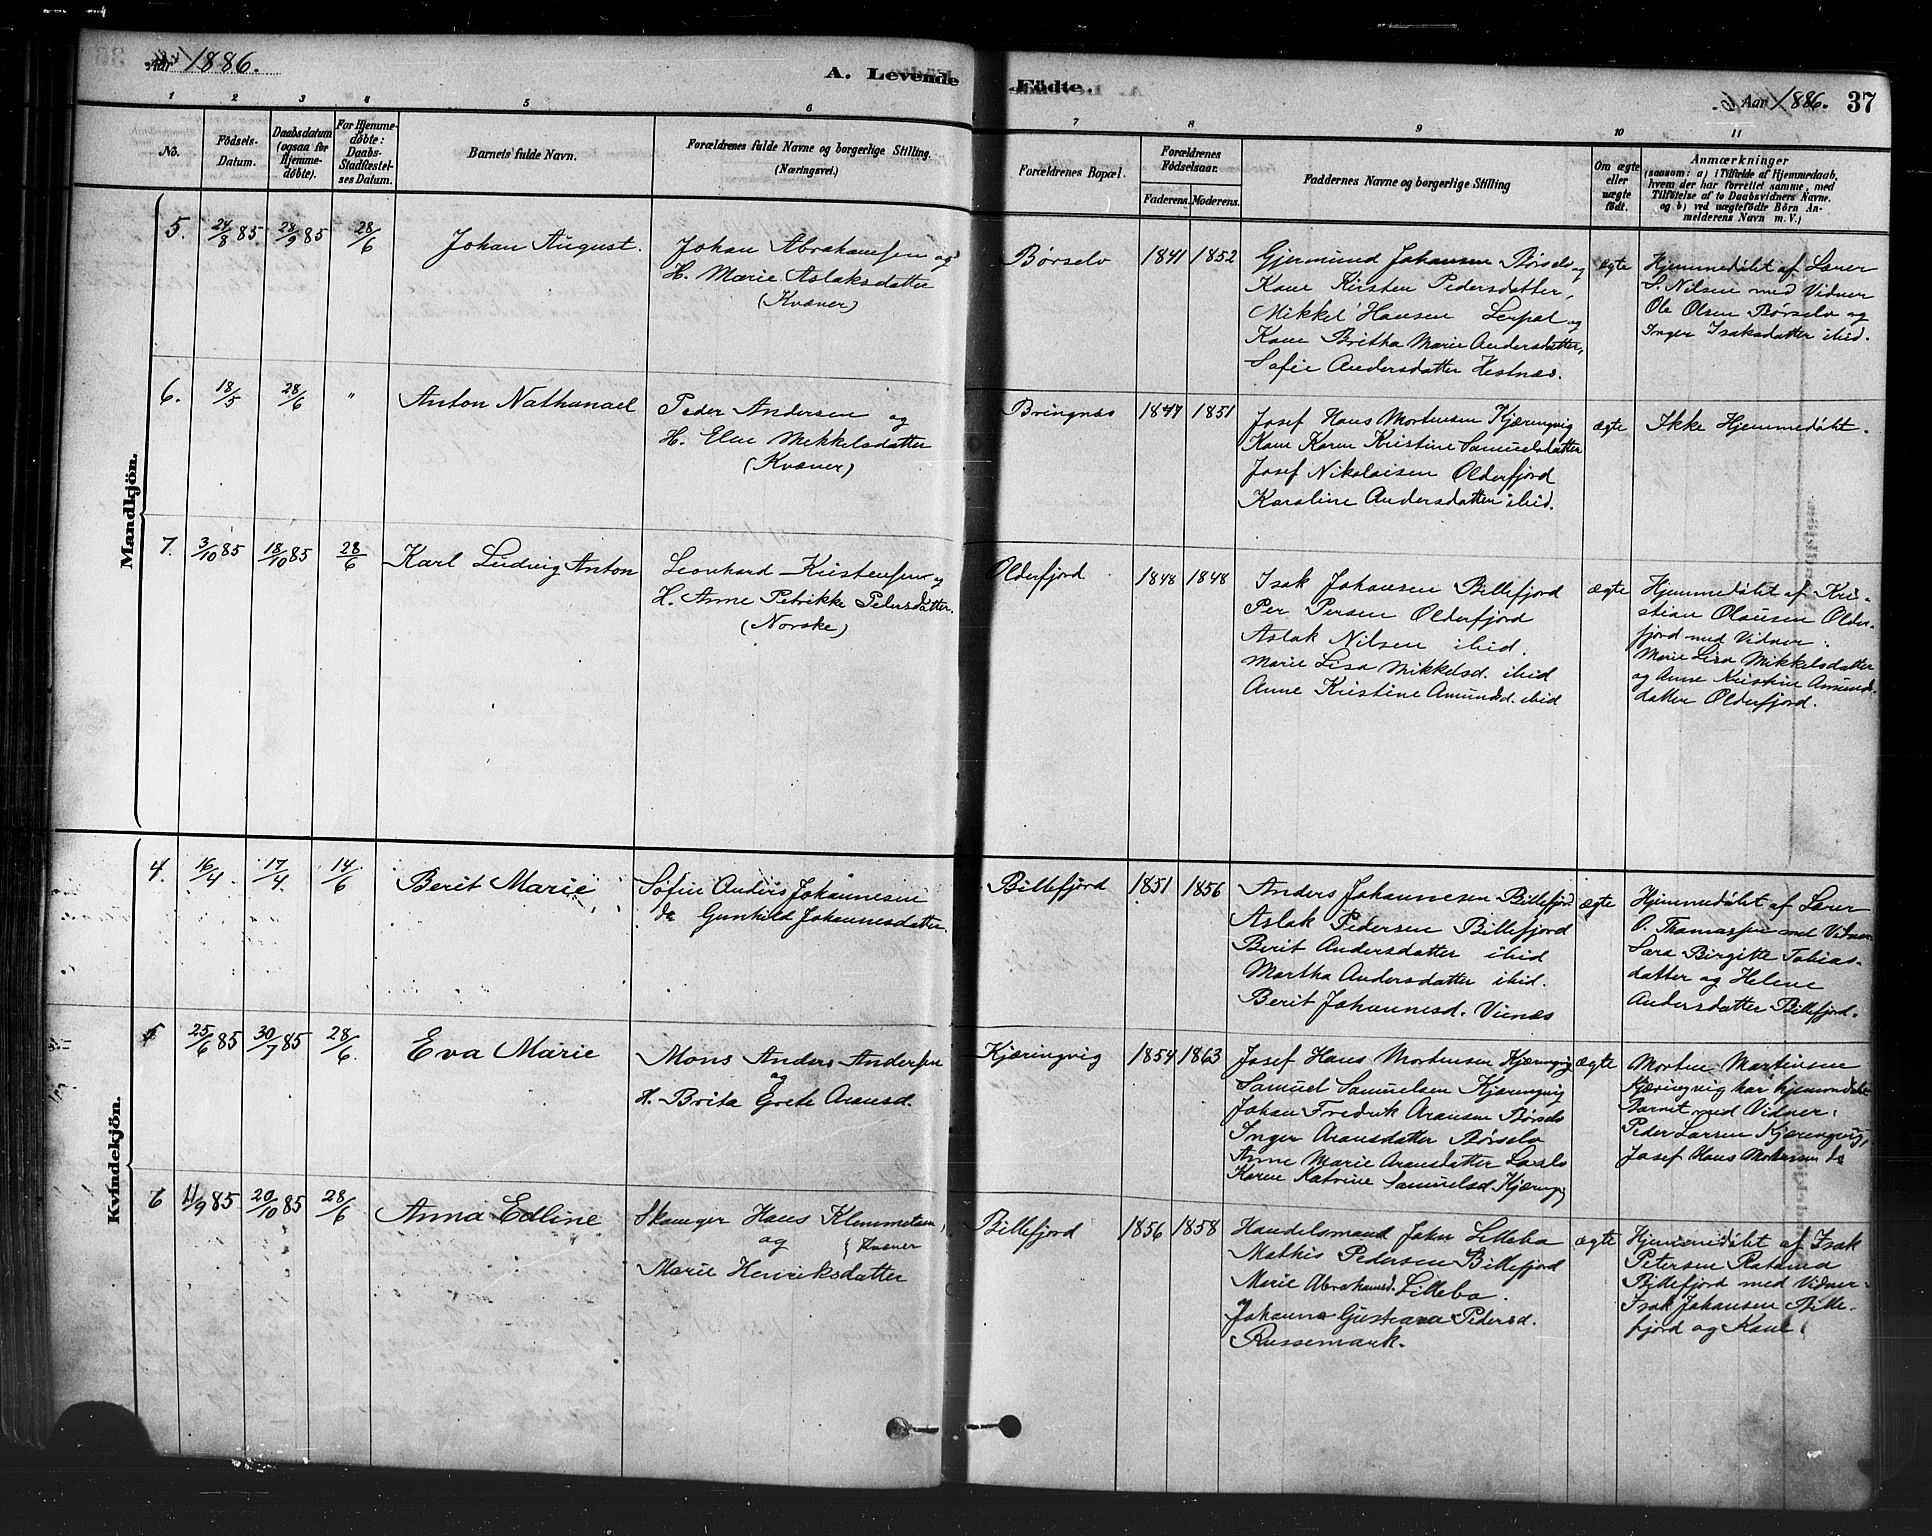 Aar 1886.
A. Levende
Födte.
Aar 1886. 37
1 2 3 4 5 6 7 8 9 10 11
No.
Födsels-
Datum.
Daabsdatum
(ogsaa for
Hjemme-
døbte).
For Hjemme-
døbte:
Daabs-
Stadfæstel-
ses Datum.
Barnets' fulde Navn.
Forældrenes fulde Navne og borgerlige Stilling.
(Næringsvei.)
Forældrenes Bopæl.
Forældrenes
Födselsaar.
Faderens. Moderens.
Faddernes Navne og borgerlige Stilling
Om ægte
eller
uægte
födt.
Anmærkninger
(saasom: a) i Tilfælde af Hjemmedaab,
hvem der har forrettet samme, med
Tilföielse af to Daabsvidners Navne.
og b) ved uægtefödte Börn An-
melderens Navn m. V.)
Mandkjön.
5. 24/8 85. 28/9 85 28/6
Johan August.
Johan Abrahamsen og
H. Marie Aslaksdatter
(Kvæner)
Børselv
1841 1852
Gjermund Johansen Børselv og
Kone Kirsten Pedersdatter,
Mikkel Hansen Lerpol og
Kone Britha Marie Andersdatter,
Sofie Andersdatter Hestnæs.
ægte
Hjemmedøbt af Lærer
S. Nilsen med Vidner
Ole Olsen Børselv og
Inger Isaksdatter ibid.
6. 18/5 28/6 "
Anton Nathanael
Peder Andersen og
H. Elen Mikkelsdatter
(Kvæner)
Bringnæs
1847 1851
Josef Hans Mortensen Kjæringvig
Kone Karen Kristine Samuelsdatter
Josef Nikolaisen Olderfjord
Karoline Andersdatter ibid.
ægte
Ikke Hjemmedøbt.
7. 3/10 85 18/10 85 28/6
Karl Ludvig Anton
Leonhard Kristensen og
H. Anne Petrikke Pedersdatter.
(Norske)
Olderfjord
1848 1848
Isak Johansen Billefjord
Per Persen Olderfjord
Aslak Nilsen ibid.
Marie Lisa Mikkelsd. ibid
Anne Kristine Amundsd. ibid
ægte
Hjemmedøbt af Kri-
stian Olausen Older-
fjord med Vidner:
Marie Lisa Mikkelsdatter
og Anne Kristine Amunds
datter Olderfjord.
Kvindekjön.
4. 16/4. 17/4. 14/6
Berit Marie
Søfin Anders Johannesen
Gunhild Johannesdatter.
Billefjord
1851 1856
Anders Johannesen Billefjord
Aslak Pedersen Billefjord
Berit Andersdatter ibid
Martha Andersdatter ibid.
Berit Johannesd. Vienæs
ægte
Hjemmedøbt af Lærer
O. Thomassen med Vidner
Sara Birgitte Tobias-
datter og Helene
Andersdatter Billefjord.
5 25/6 85 30/7 85 28/6.
Eva Marie
Mons Anders Andersen
og
H. Brita Grete Aronsd.
Kjæringvig
1854 1863
Josef Hans Mortensen Kjæringvig
Samuel Samuelsen Kjæringvig
Johan Fredrik Aronsen Børselv
Inger Aronsdatter Børselv
Anne Marie Aronsdatter
Karen Katrine Samuelsd. Kjæringvig
ægte
Morten Martinsen
Kjæringvig har hjemmedøbt
Barnet med Vidner:
Peder Larsen Kjæringvig,
Josef Hans Mortensen do
6 11/9 85 20/10 85 28/6
Anna Edline
Skomager Hans Klemmetsen,
og { Kvæner
Marie Henriksdatter
Billefjord
1856 1858
Handelsmand John Lillebo
Mathis Pedersen Billefjord
Marie Abrahamsd. Lillebo.
og
Johanne Gustava Pedersd.
Russemark.
ægte
Hjemmedøbt af Isak
Petersen
Billefjord med Vidner-
Isak Johansen Bille-
fjord og Kone.